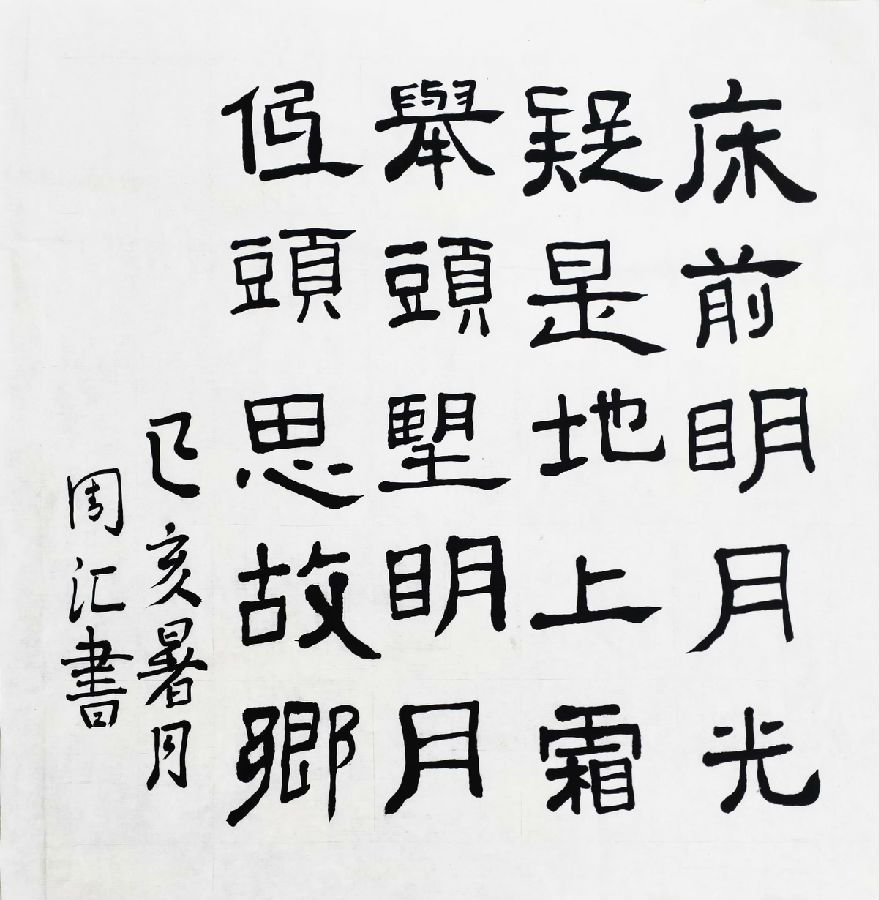 床前明月光
疑是地上霜
舉頭望明月
低頭思故鄉
己亥暑月
周汇書